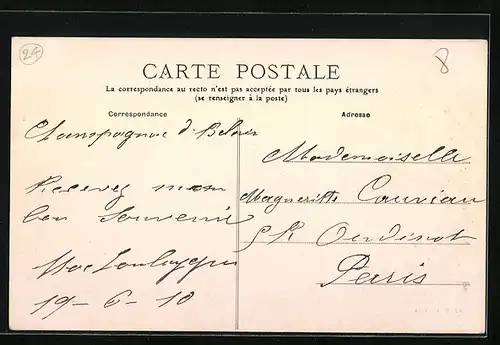 24
8
CARTE POSTALE
La correspondance au recto n'est pas acceptée par tous les pays étrangers
(se renseigner à la poste)
Correspondance
Adresse
Champagnac d
Recevez mon
bon Souvenir
19-6-10
Mademoiselle
Oudinot
Paris